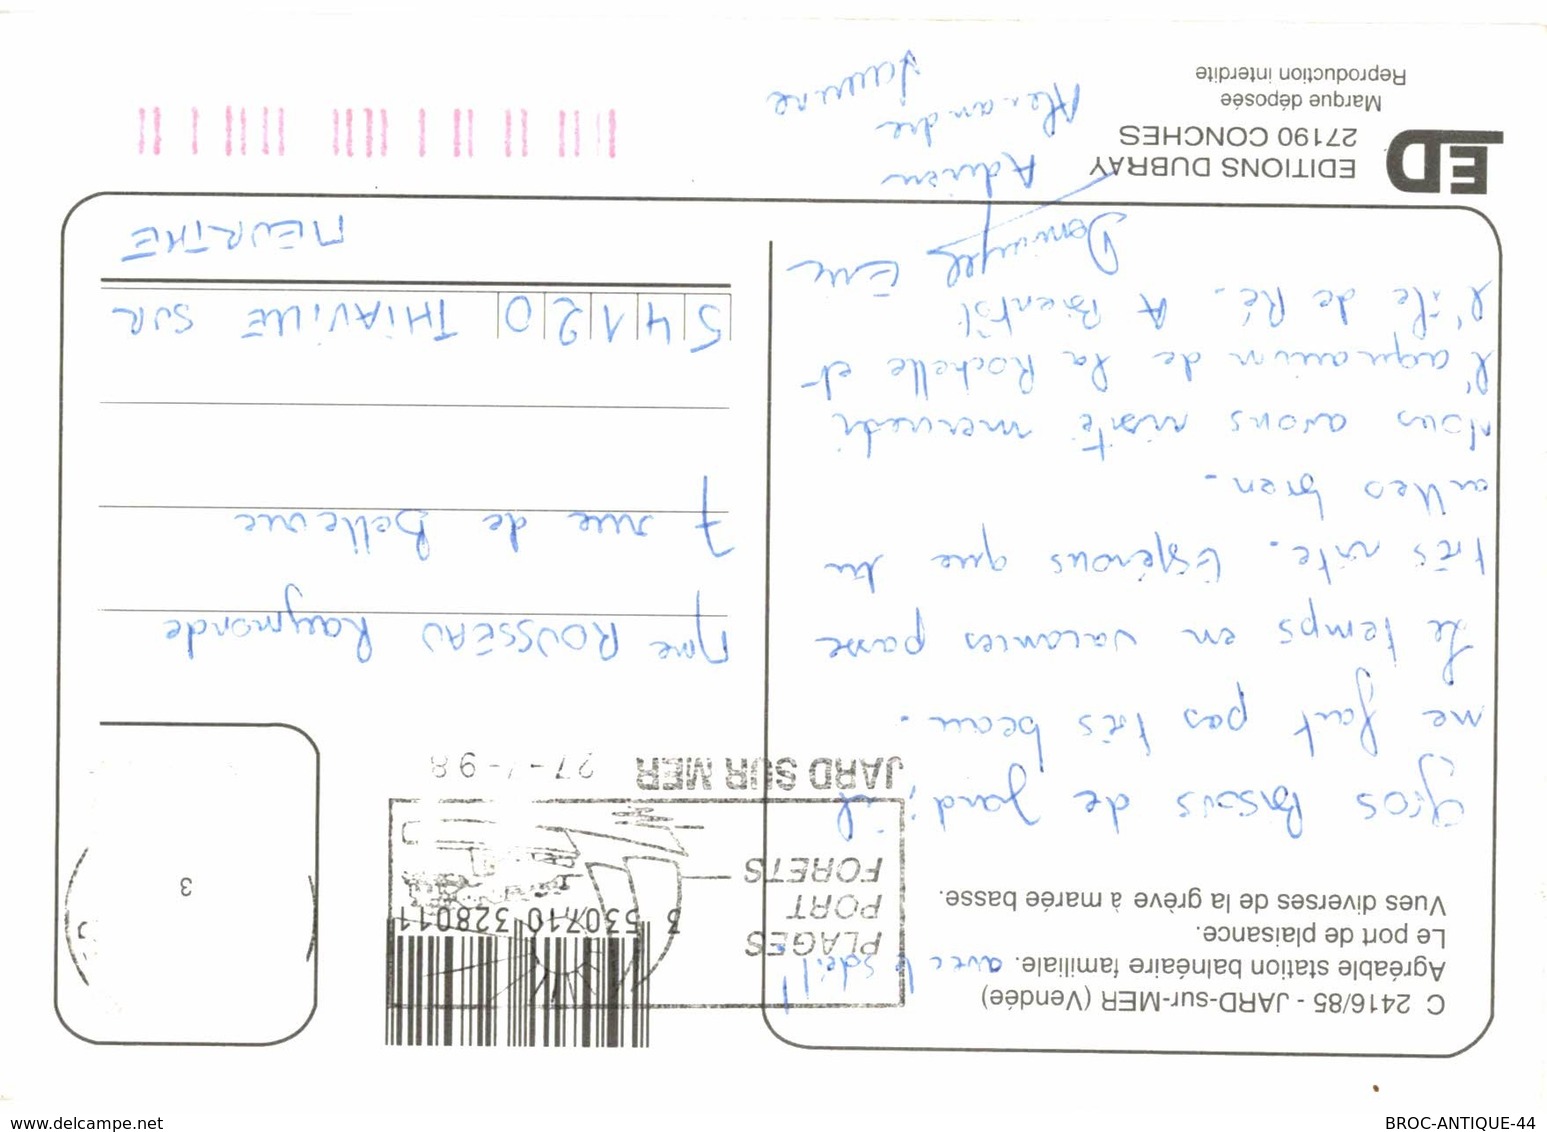 C 2416/85 - JARD-sur-MER (Vendée)
Agréable station balnéaire familiale. avec le soleil !
Le port de plaisance.
Vues diverses de la grève à marée basse.
Gros Bisous de Jard ; il
me fait pas très beau.
Le temps en vacances passe
très vite. Espérons que tu
ailles bien.
Nous avons visité mercredi
l'aquarium de la Rochelle et
l'île de Ré. A Bientôt
Eric
Adrien
Alexandre
PLAGES
PORT
FORETS
JARD SUR MER 27- -98
3 530710 328011
3
Mme ROUSSEAU Raymonde
7 rue de Bellevue
54120 THIAVILLE SUR
MEURTHE
ED
EDITIONS DUBRAY
27190 CONCHES
Marque déposée
Reproduction interdite
www.delcampe.net
BROC-ANTIQUE-44